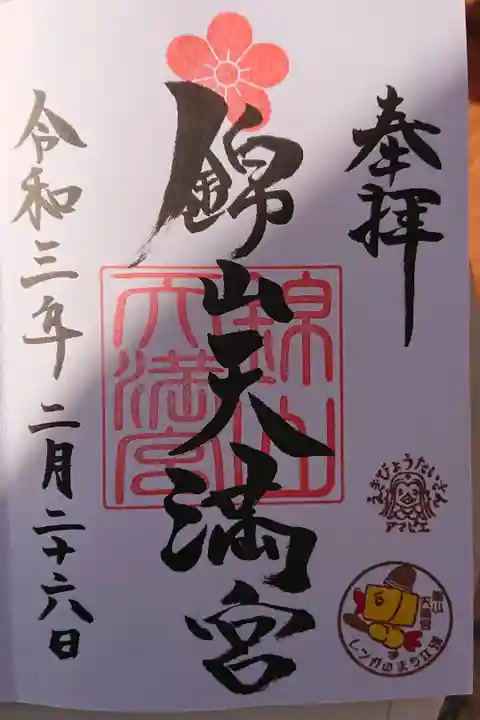 奉拝
錦山天満宮
錦山
天満宮
令和三年二月二十六日
えきびょうたいさん
アマビエ
錦山
天満宮
レンガのまち江別